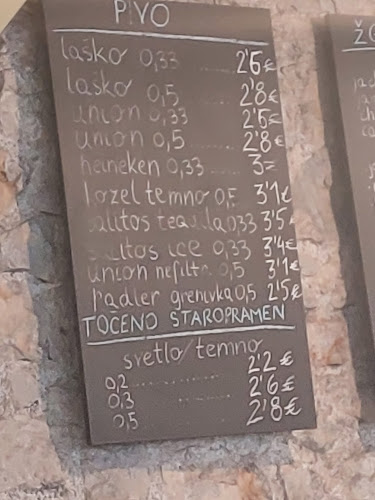 PIVO
laško 0,33 ........ 2'6€
laško 0,5 ........ 2'8€
union 0,33 2'6€
union 0,5 ...... 2'8€
heineken 0,33 ...... 3=
kozel temno 0,5 3'1€
salitos tequila 0,33 3'5
salitos ice 0,33 3'4€
union nefiltr. 0,5 3'1€
radler grenivka 0,5 2'5€
TOČENO STAROPRAMEN
svetlo/temno
0,2 ............ 2'2€
0,3 ............ 2'6€
0,5 ............ 2'8€